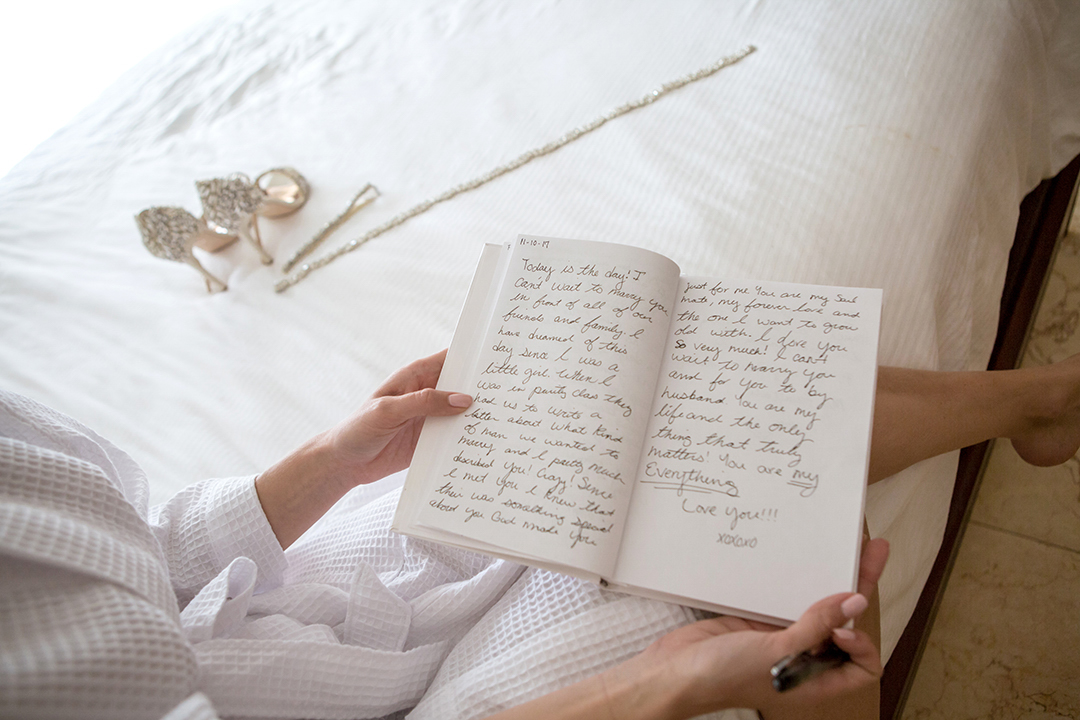 11-10-17
Today is the day! I
Can't wait to Marry you
in front of all of our
friends and family. I
have dreamed of this
day since I was a
little girl. When I
was in purity class they
had us to write a
letter about what kind
of man we wanted to
marry and I pretty much
described You! Crazy! Since
I met you I knew that
ther was something special
about you God made you
just for me You are my Soul
mate, my forever love and
the one I want to grow
old with. I love you
So very much! I can't
wait to Marry you
and for you to by
husband You are my
life and the only
thing that truly
matters! You are my
Everything
Love You!!!
xoxoxo